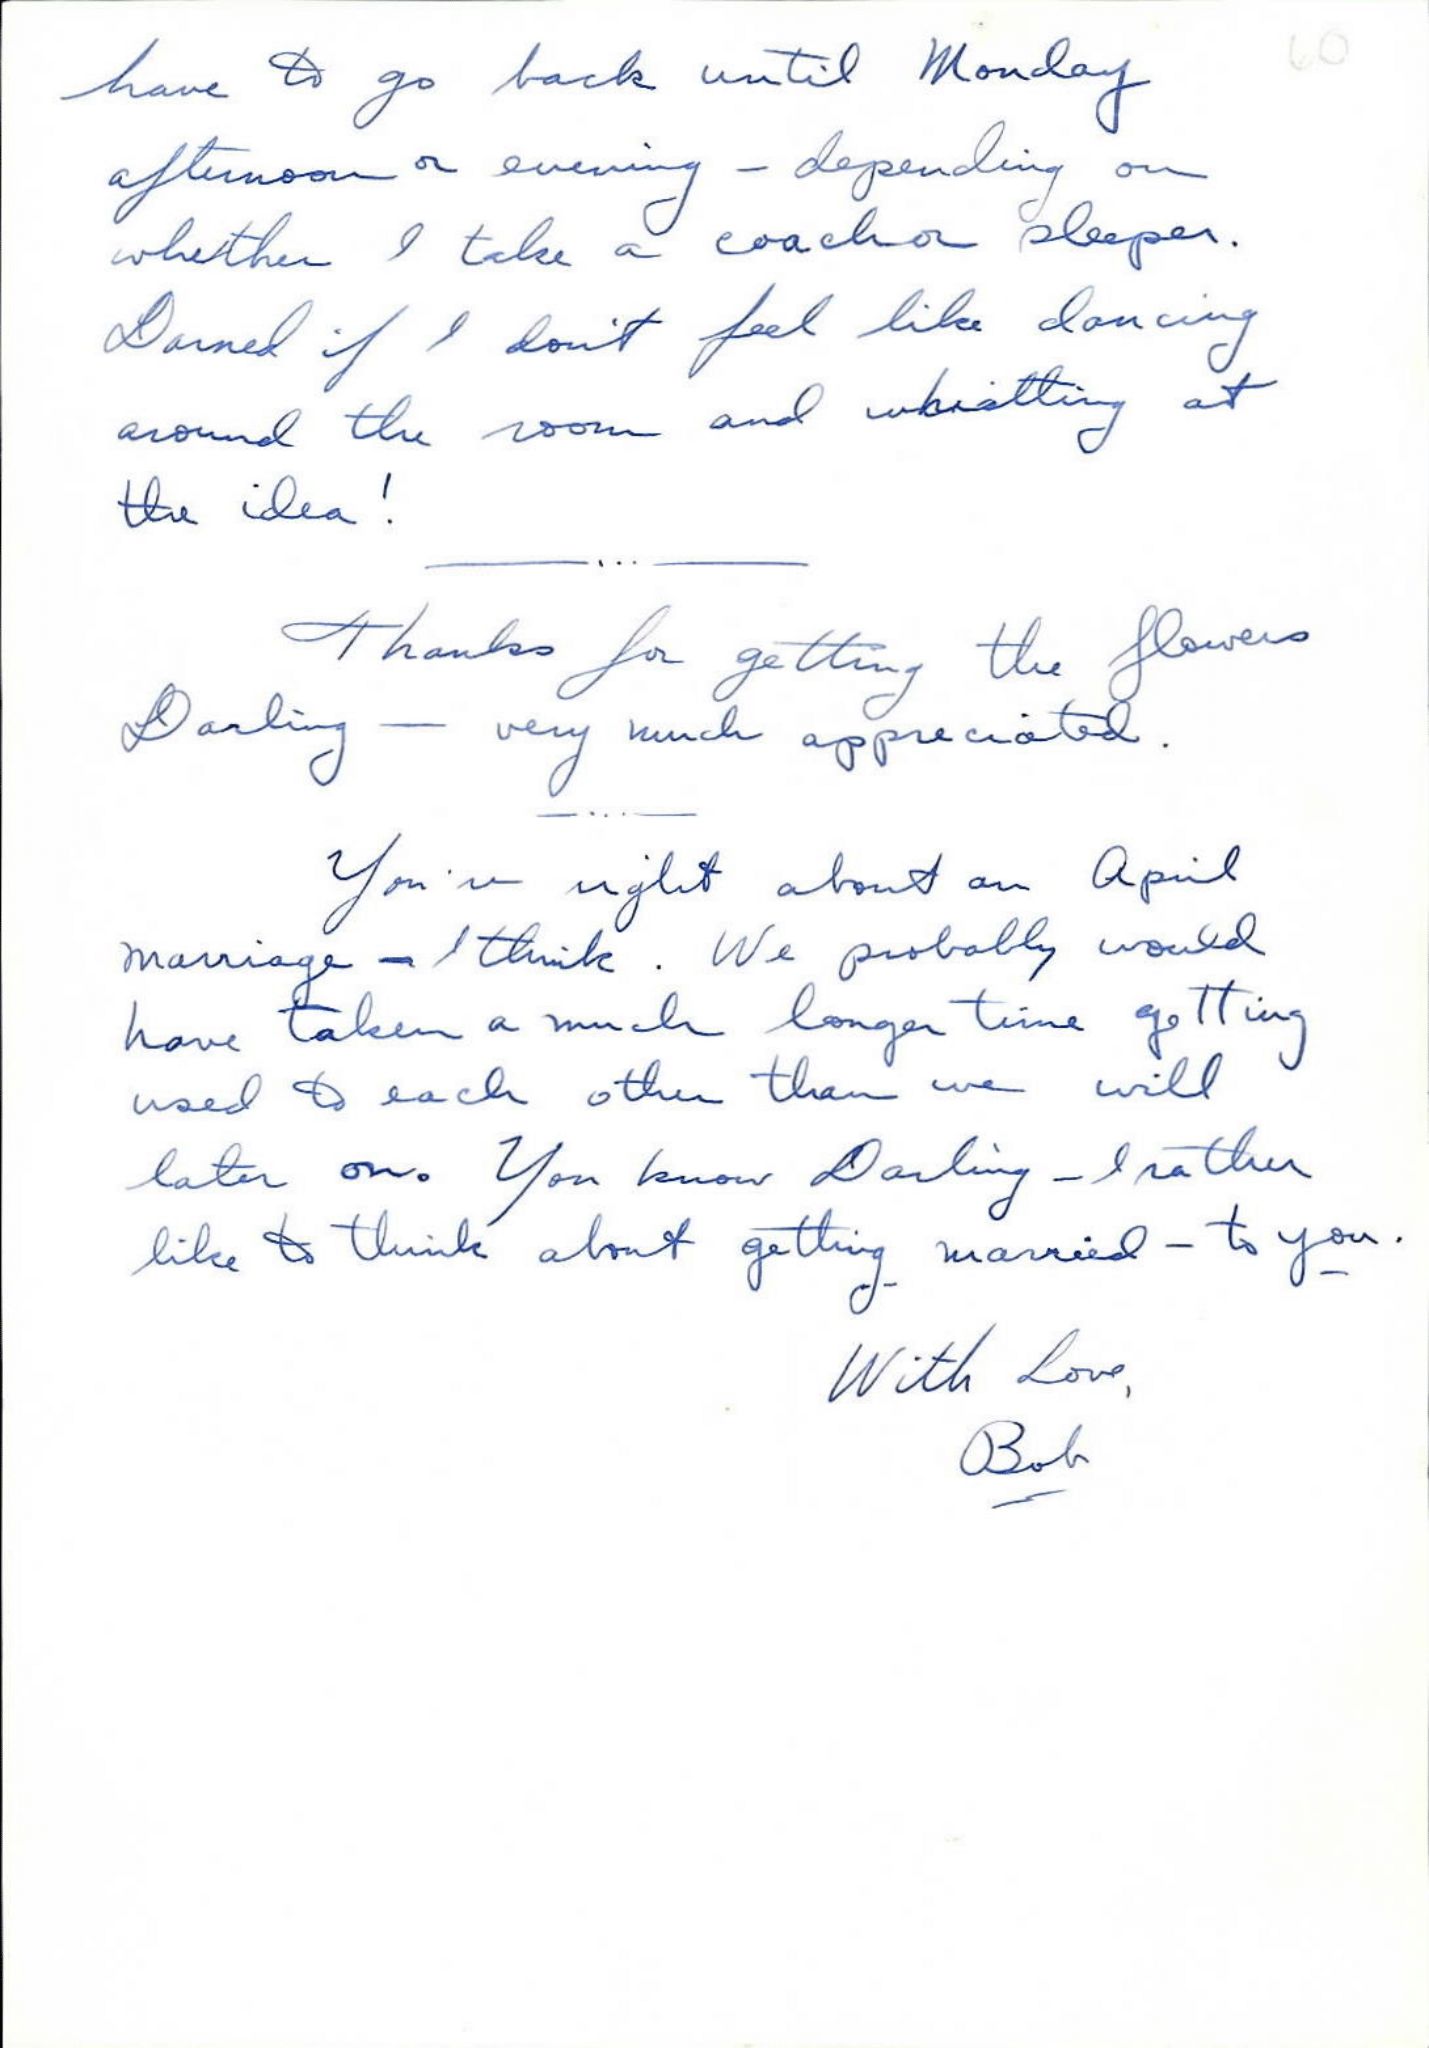 60
have to go back until Monday
afternoon or evening – depending on
whether I take a coach or sleeper.
Darned if I don't feel like dancing
around the room and whistling at
the idea!
Thanks for getting the flowers
Darling — very much appreciated.
You're right about an April
marriage – I think. We probably would
have taken a much longer time getting
used to each other than we will
later on. You know Darling – I rather
like to think about getting married – to you.
With Love,
Bob